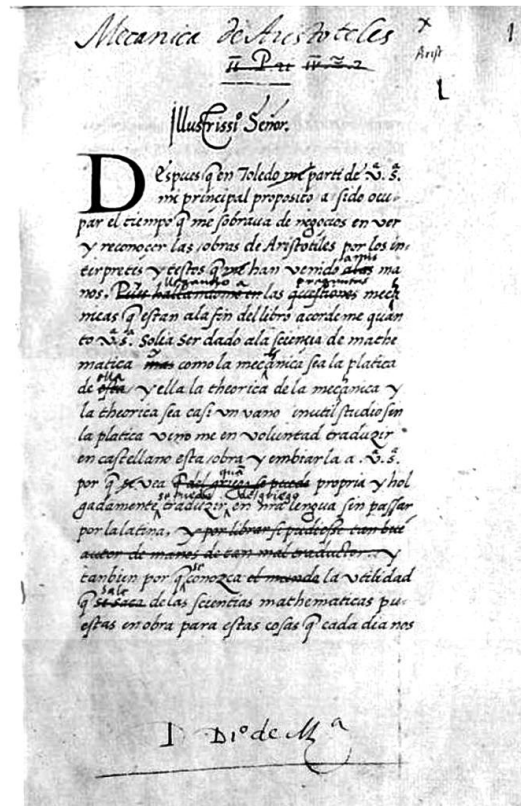 Mecanica de Aristoteles
x
Arist
1
L
Illustrissº Señor.
Despues q̃ en Toledo me parti de v.ª s.ª
mi principal proposito a sido ocu-
par el tiempo q̃ me sobrava de negocios en ver
y reconocer las obras de Aristotiles por los in-
terpretes y testos q̃ me han venido a mis ma
nos. llegando a las preguntas questiones meca
nicas q̃ estan ala fin del libro acorde me quan
to v.ª s.ª solia ser dado ala sciencia de mathe
matica mas como la mecanica sea la platica
de ella esta / y ella la theorica de la mecanica y
la theorica sea casi un vano inutil studio sin
la platica vino me en voluntad traduzir
en castellano esta obra y embiarla a .v.ª s.ª
por q̃ se vea quã propria y hol
gadamente se puede traduzir de griego en nr̃a lengua sin passar
por la latina, y por librar si pudiesse tambiẽ
autor de manos de tan mal traductor.. y
tanbien por q̃ se conozca el mundo la utilidad
q̃ sale se saca de las sciencias mathematicas pu-
estas en obra para estas cosas q̃ cada dia nos
D Dº de Mª